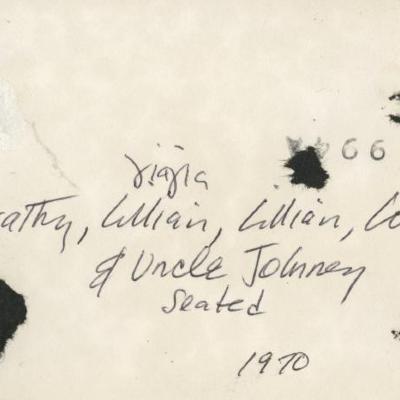 66
athy, Lillian, Lillian,
& Uncle Johnney
Seated
1970